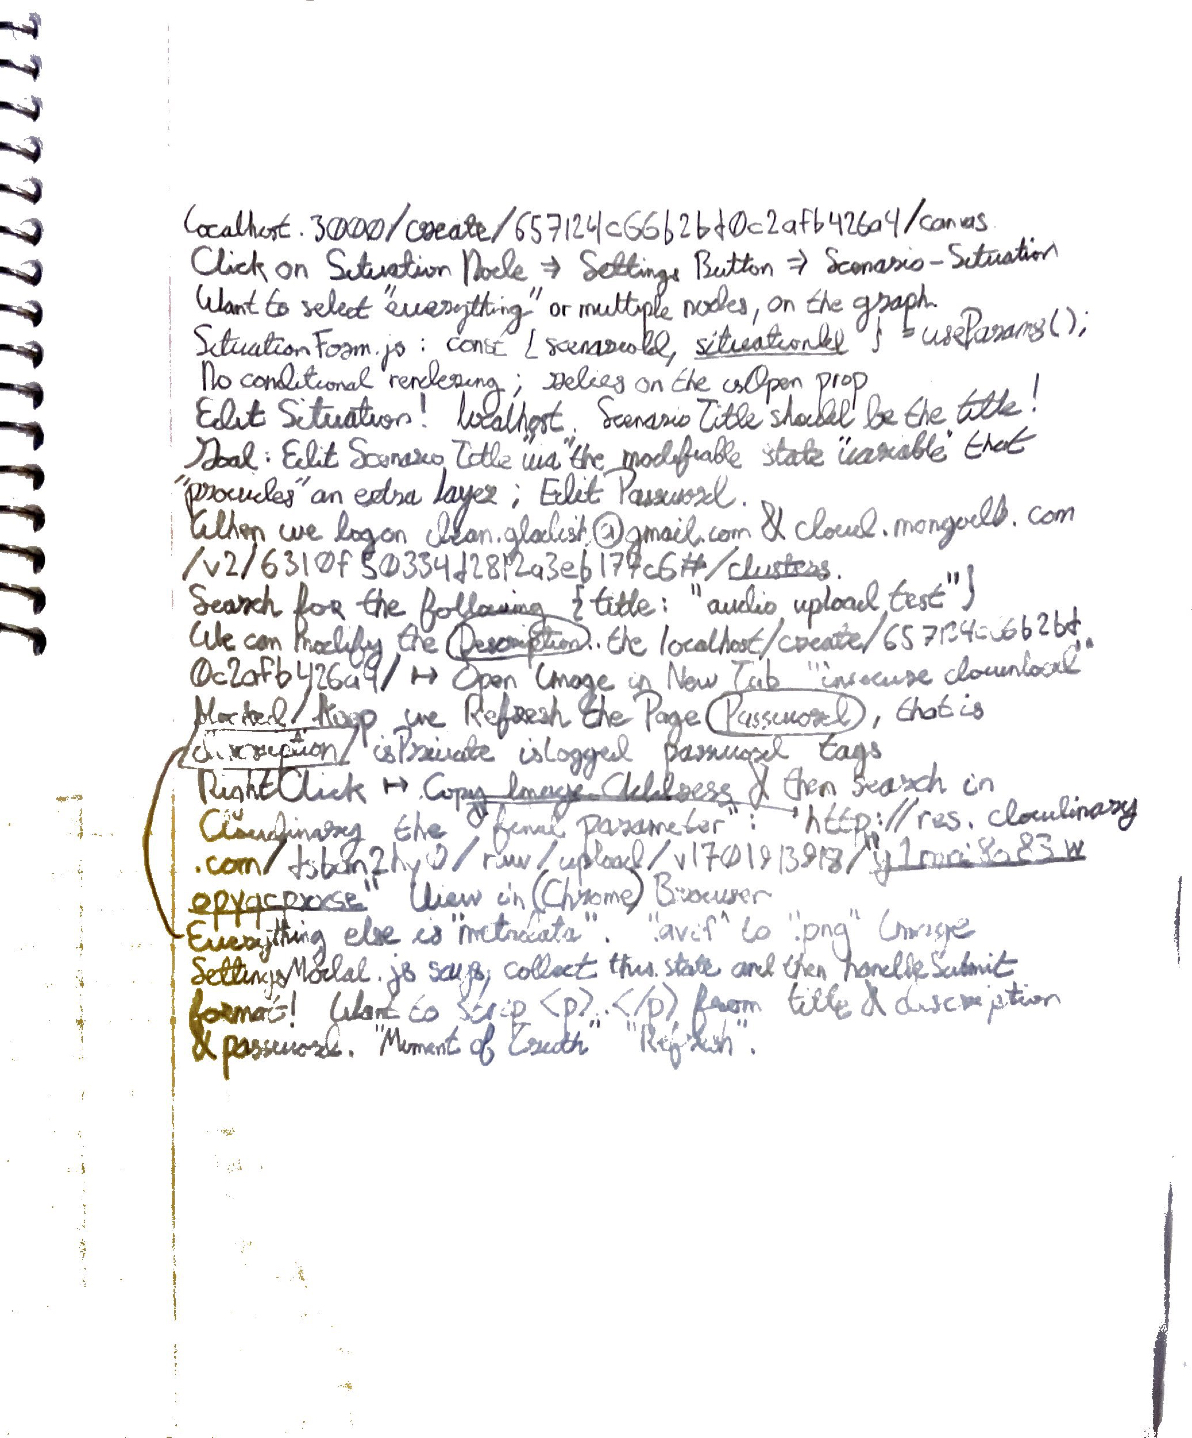 localhost.3000/create/657124c66b2bd0c2afb426a4/canvas
Click on Situation Node ⇒ Settings Button ⇒ Scenario-Situation
Want to select "everything" or multiple nodes, on the graph.
SituationForm.js : const { scenarioId, situationId } = useParams();
No conditional rendering; relies on the isOpen prop
Edit Situation! localhost. Scenario Title should be the title!
Goal: Edit Scenario Title "via" the modifiable state "variable" that
"provides" an extra layer; Edit Password.
When we logon @gmail.com & cloud.mongodb.com
/v2/6310f50334d2812a3eb179c6#/clusters.
Search for the following {title: "audio upload test"}
We can modify the Description.. the localhost/create/657124c66b2bd
0c2afb426a9/ ↦ Open Image in New Tab "insecure download"
blocked/ Keep we Refresh the Page Password, that is
description/ isPrivate isLogged password tags
Right Click ↦ Copy Image Address & then Search in
Cloudinary the "final parameter": "http://res.cloudinary
.com/ /raw/upload/v1701913918/
View in (Chrome) Browser
Everything else is "metadata". ".avif" to ".png" Image
SettingsModal.js says, collect this state and then handleSubmit
format! Want to strip <p>.</p> from title & description
& password. "Moment of Truth" "Refresh".